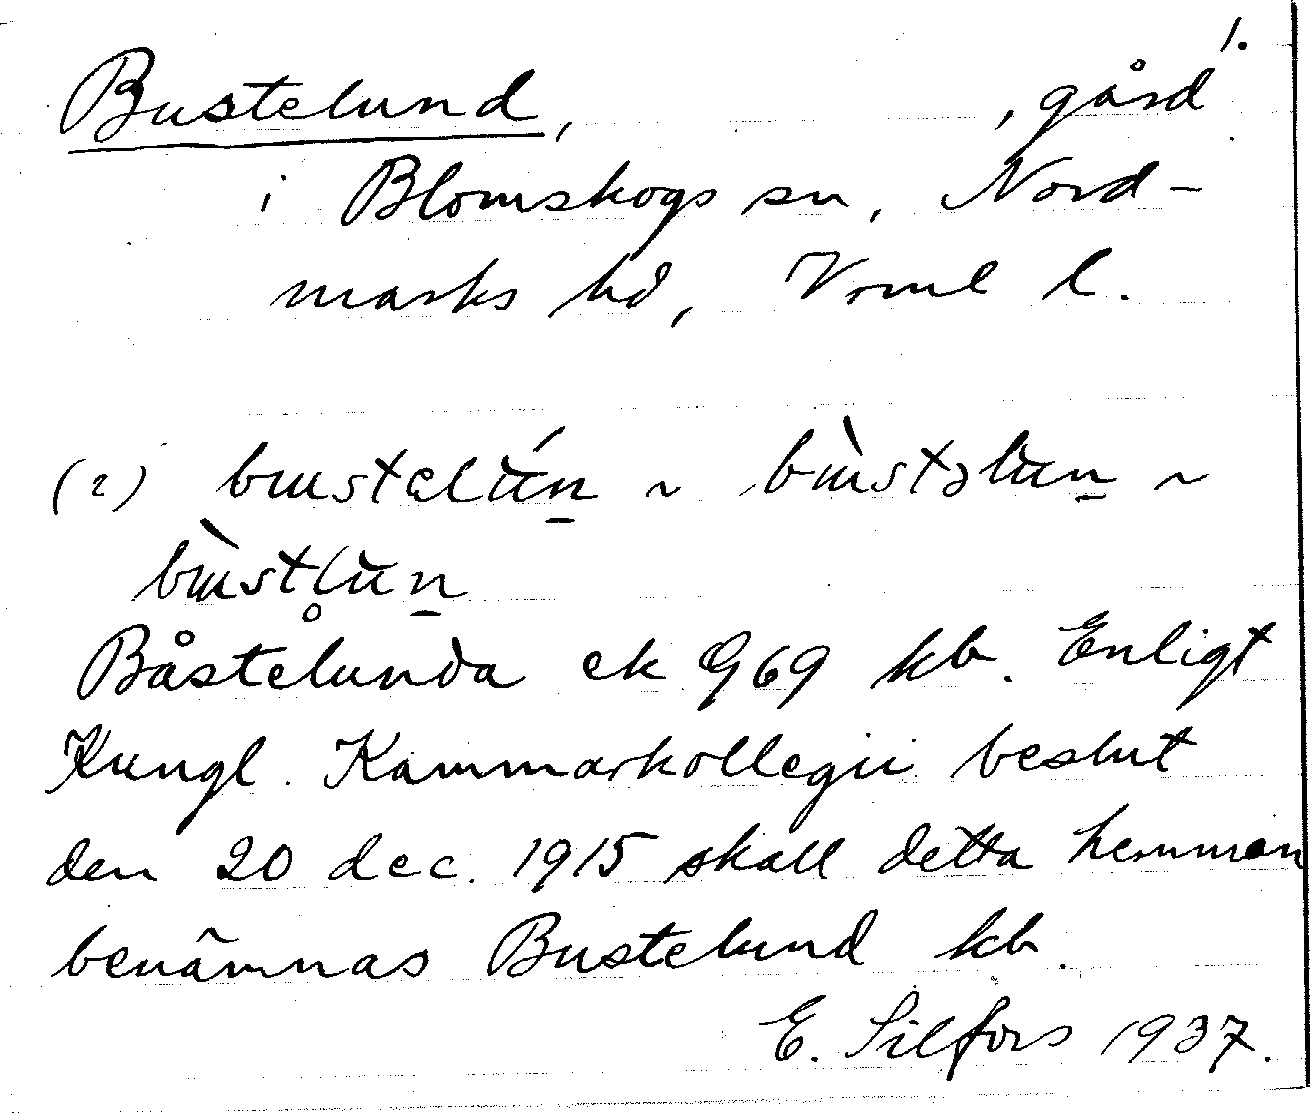 1.
Bustelund, , gård
i Blomskogs sn, Nord-
marks hd, Vrml l.
(2) bustelún̠ ~ bùstəlun̠ ~
bùstl̥un̠
Båstelunda ek 969 kb. Enligt
Kungl. Kammarkollegii beslut
den 20 dec. 1915 skall detta hemman
benämnas Bustelund kb.
E. Silfors 1937.